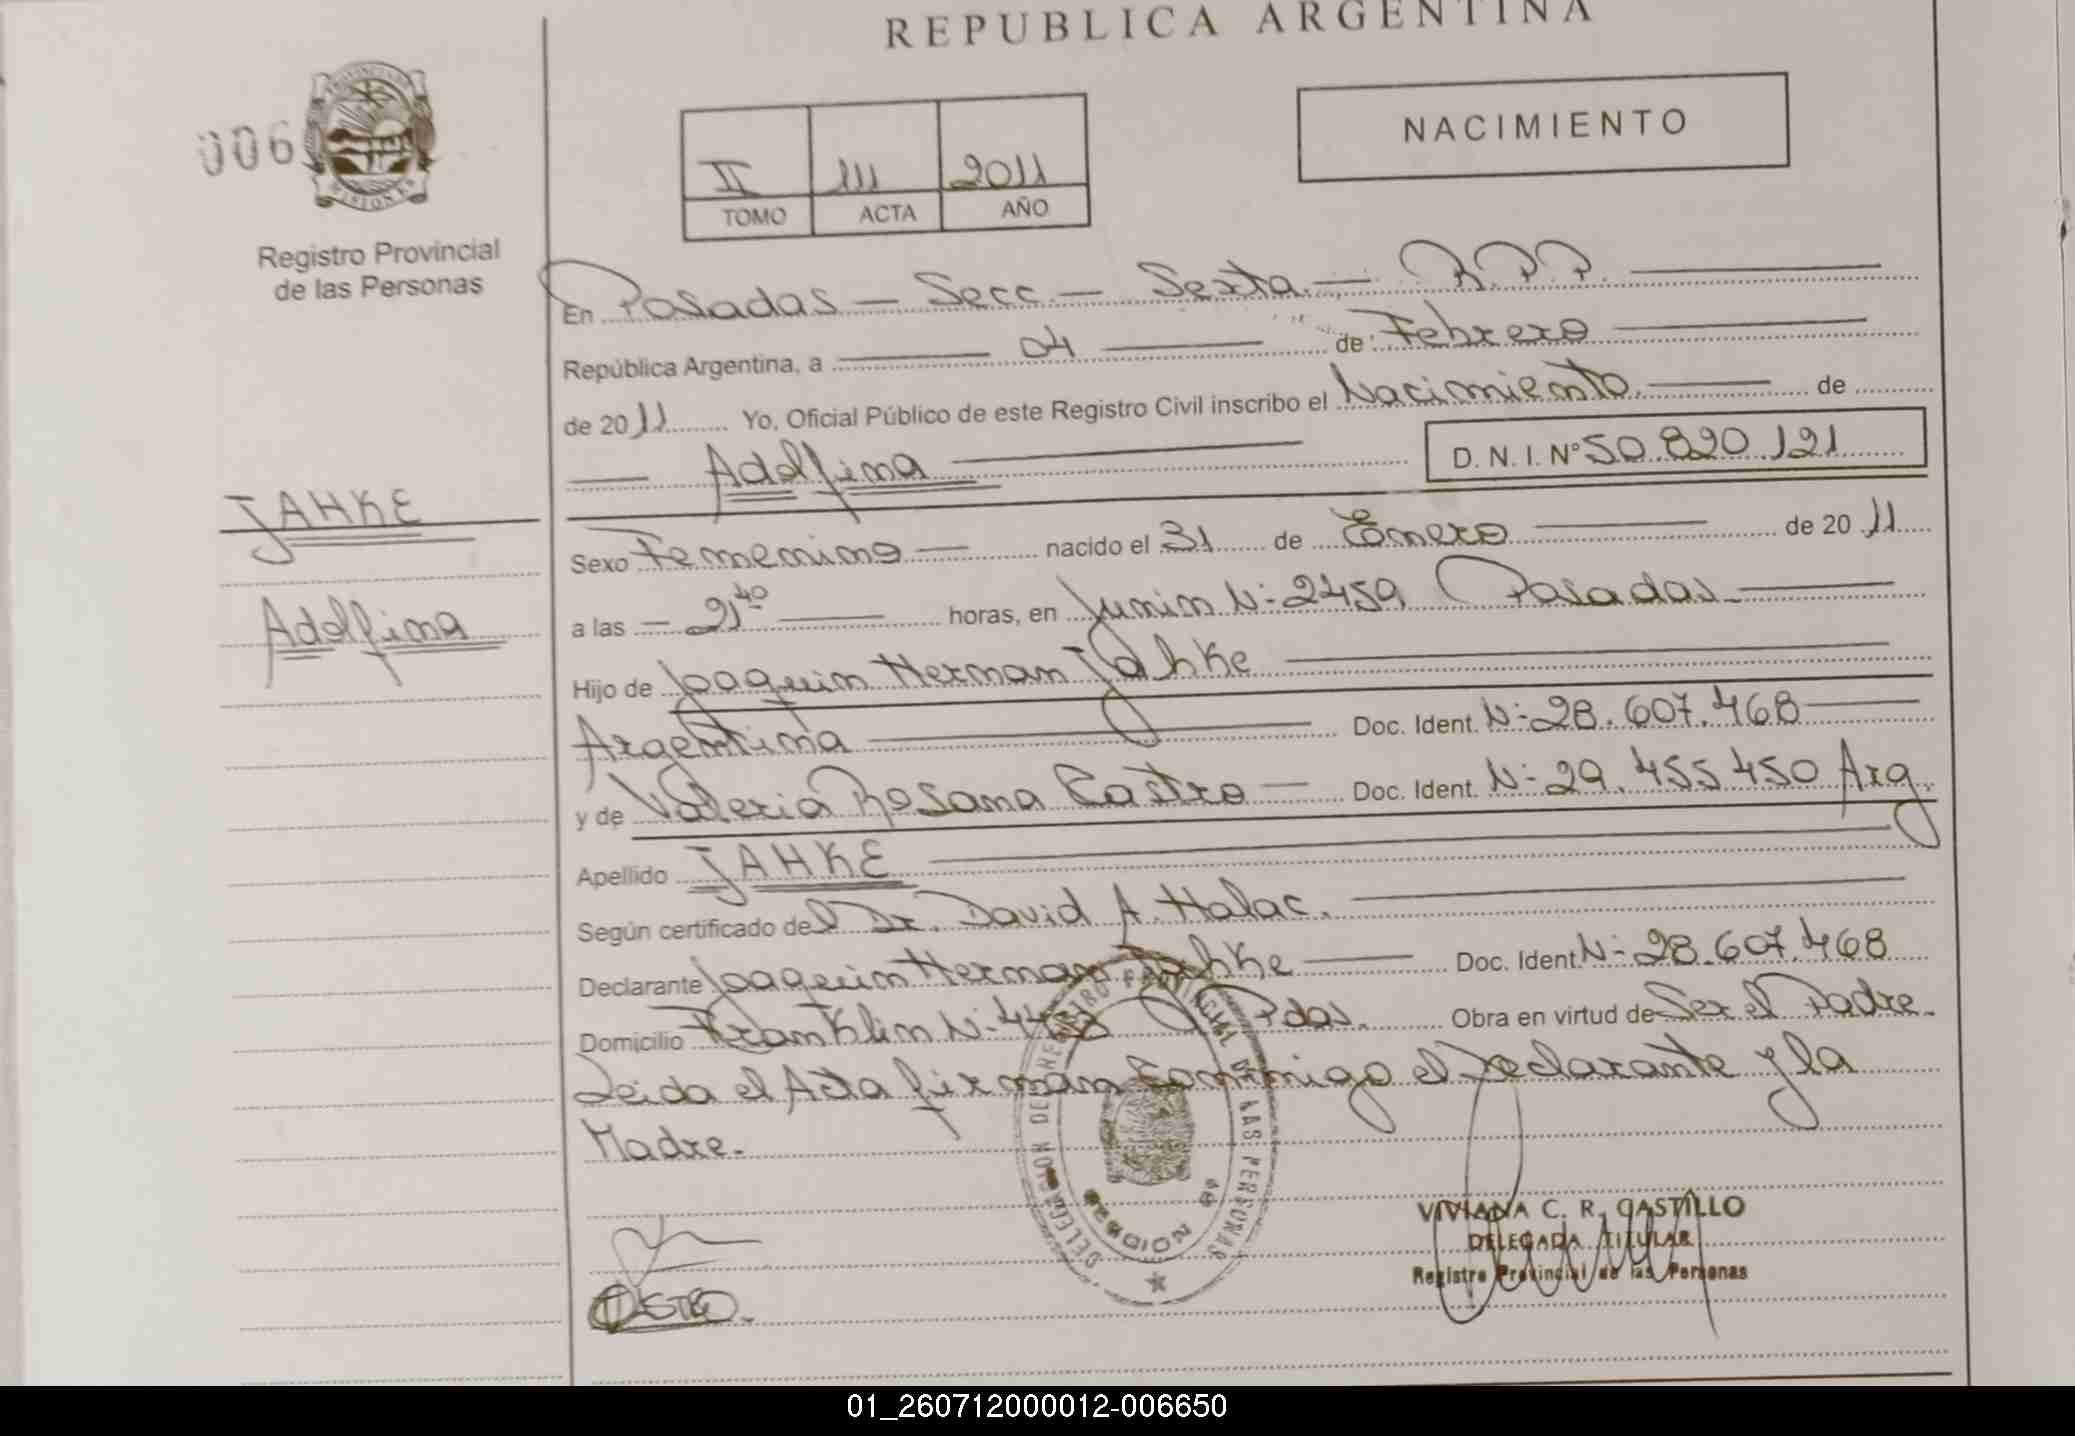 REPUBLICA ARGENTINA
006
PROVINCIA DE MISIONES
Registro Provincial
de las Personas
II 111 2011
TOMO ACTA AÑO
NACIMIENTO
En Posadas - Secc - Sexta - R.P.P.
República Argentina, a 04 de Febrero
de 2011 Yo, Oficial Público de este Registro Civil inscribo el Nacimiento de
Adelfina D. N. I. Nº 50.820.121
JAHKE
Adelfina
Sexo Femenino nacido el 31 de Enero de 2011
a las 21 40 horas, en Junin Nº 2459 Posadas
Hijo de Joaquin Herman Jahke
Argentina Doc. Ident. Nº 28.607.468
y de Valeria Rosana Castro Doc. Ident. Nº 29.455450 Arg.
Apellido JAHKE
Según certificado del Dr. David A. Halac.
Declarante Joaquin Herman Jahke Doc. Ident. Nº 28.607.468
Domicilio Franklin Nº Pdas. Obra en virtud de Ser el Padre.
Leida el Acta firman Conmigo el Declarante y la
Madre.
CASTRO.
DEL REGISTRO PROVINCIAL DE LAS PERSONAS
VIVIANA C. R. CASTILLO
DELEGADA TITULAR
Registro Provincial de las Personas
01_260712000012-006650